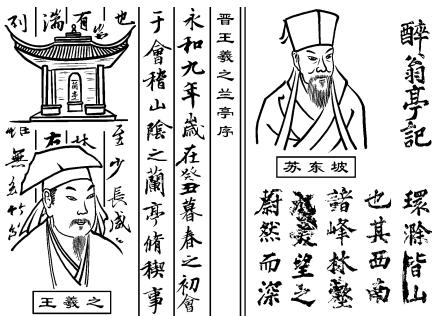 醉翁亭記
苏东坡
環滁皆山
也其西南
諸峰林壑
望之
蔚然而深
晋王羲之兰亭序
永和九年歲在癸丑暮春之初會
于會稽山陰之蘭亭脩稧事
也
至少長咸
有
湍
右
列
無
蘭亭
王羲之